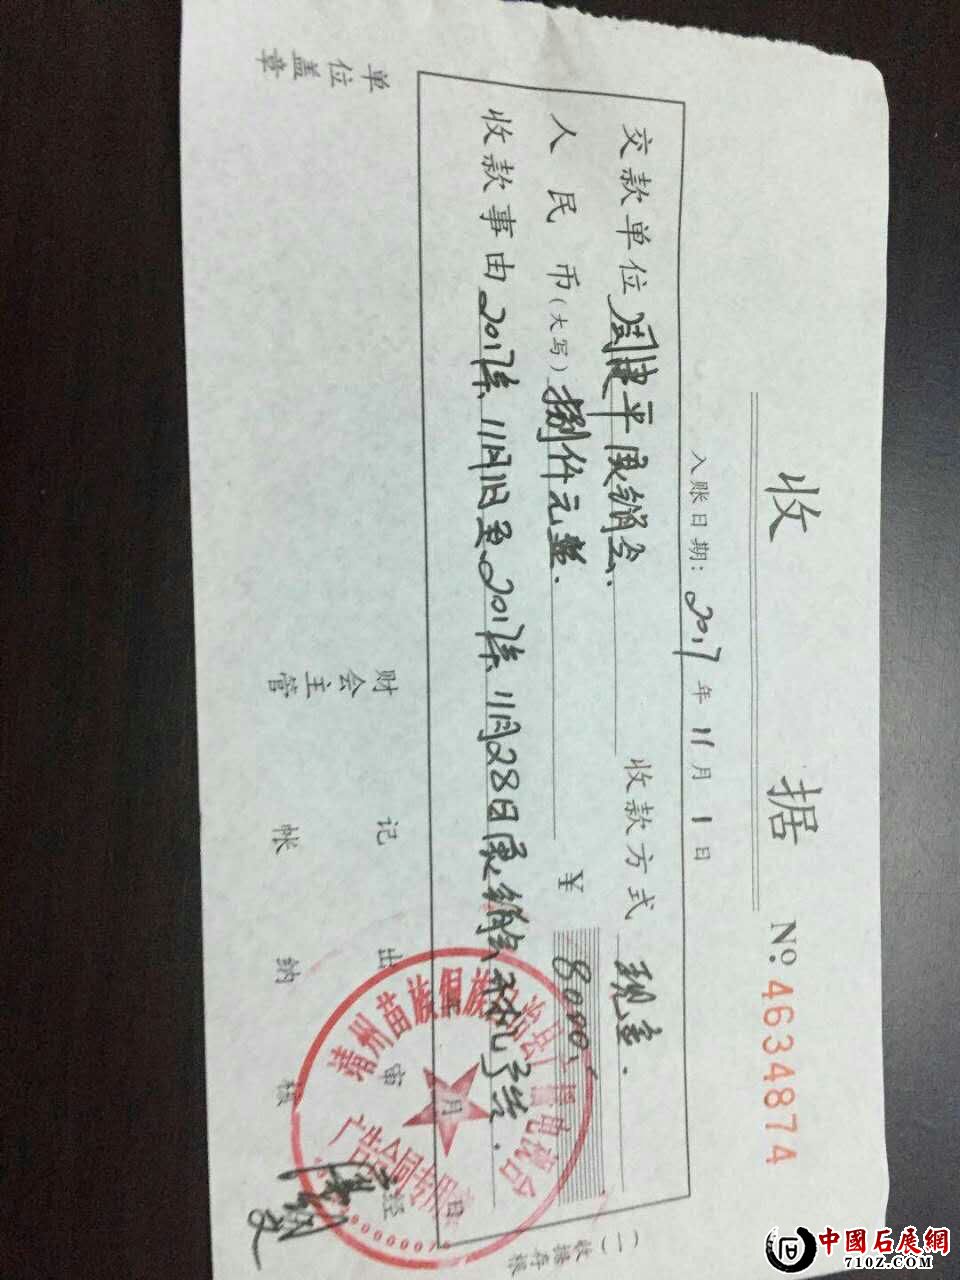 收 据
№.4634874
入账日期：2017年11月1日
交款单位 周建平展销会. 收款方式 现金.
人民币(大写) 捌仟元整. ￥ 8000
收款事由 2017年11月1日至2017年11月28日展销会
靖州苗族侗族自治县广播电视台
广告合同专用章
单位盖章 财会主管 记帐 出纳 审核 经
(二)收据存根
中國石展網
710Z.COM